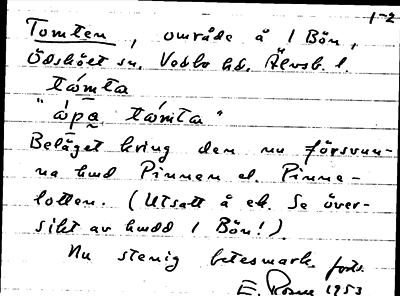 1-2
Tomten, område å 1 Bön,
Ödskölt sn. Vedbo hd. Älvsb. l.
tómta
"ó̀pa tómta"
Beläget kring den nu försvun-
na hmd Pinnen el. Pinne-
lotten. (Utsatt å ek. Se över-
sikt av hmdd 1 Bön!).
Nu stenig betesmark. forts.
E. 1953